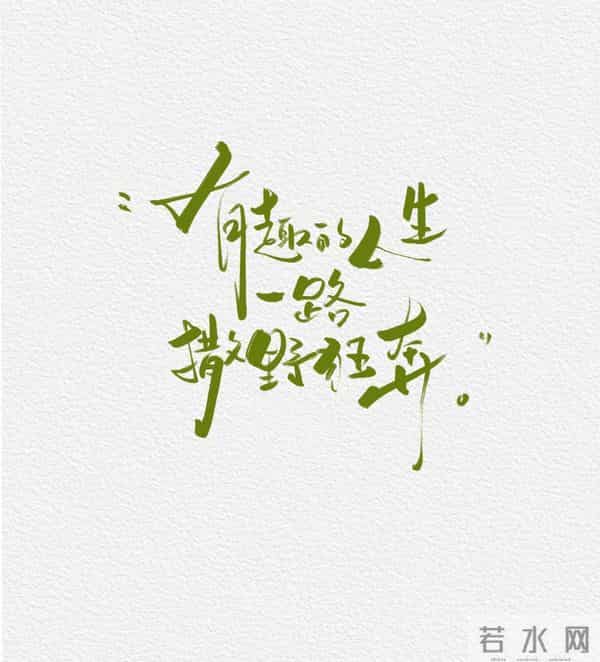 “有趣的人生
一路
撒野狂奔。”
若水网